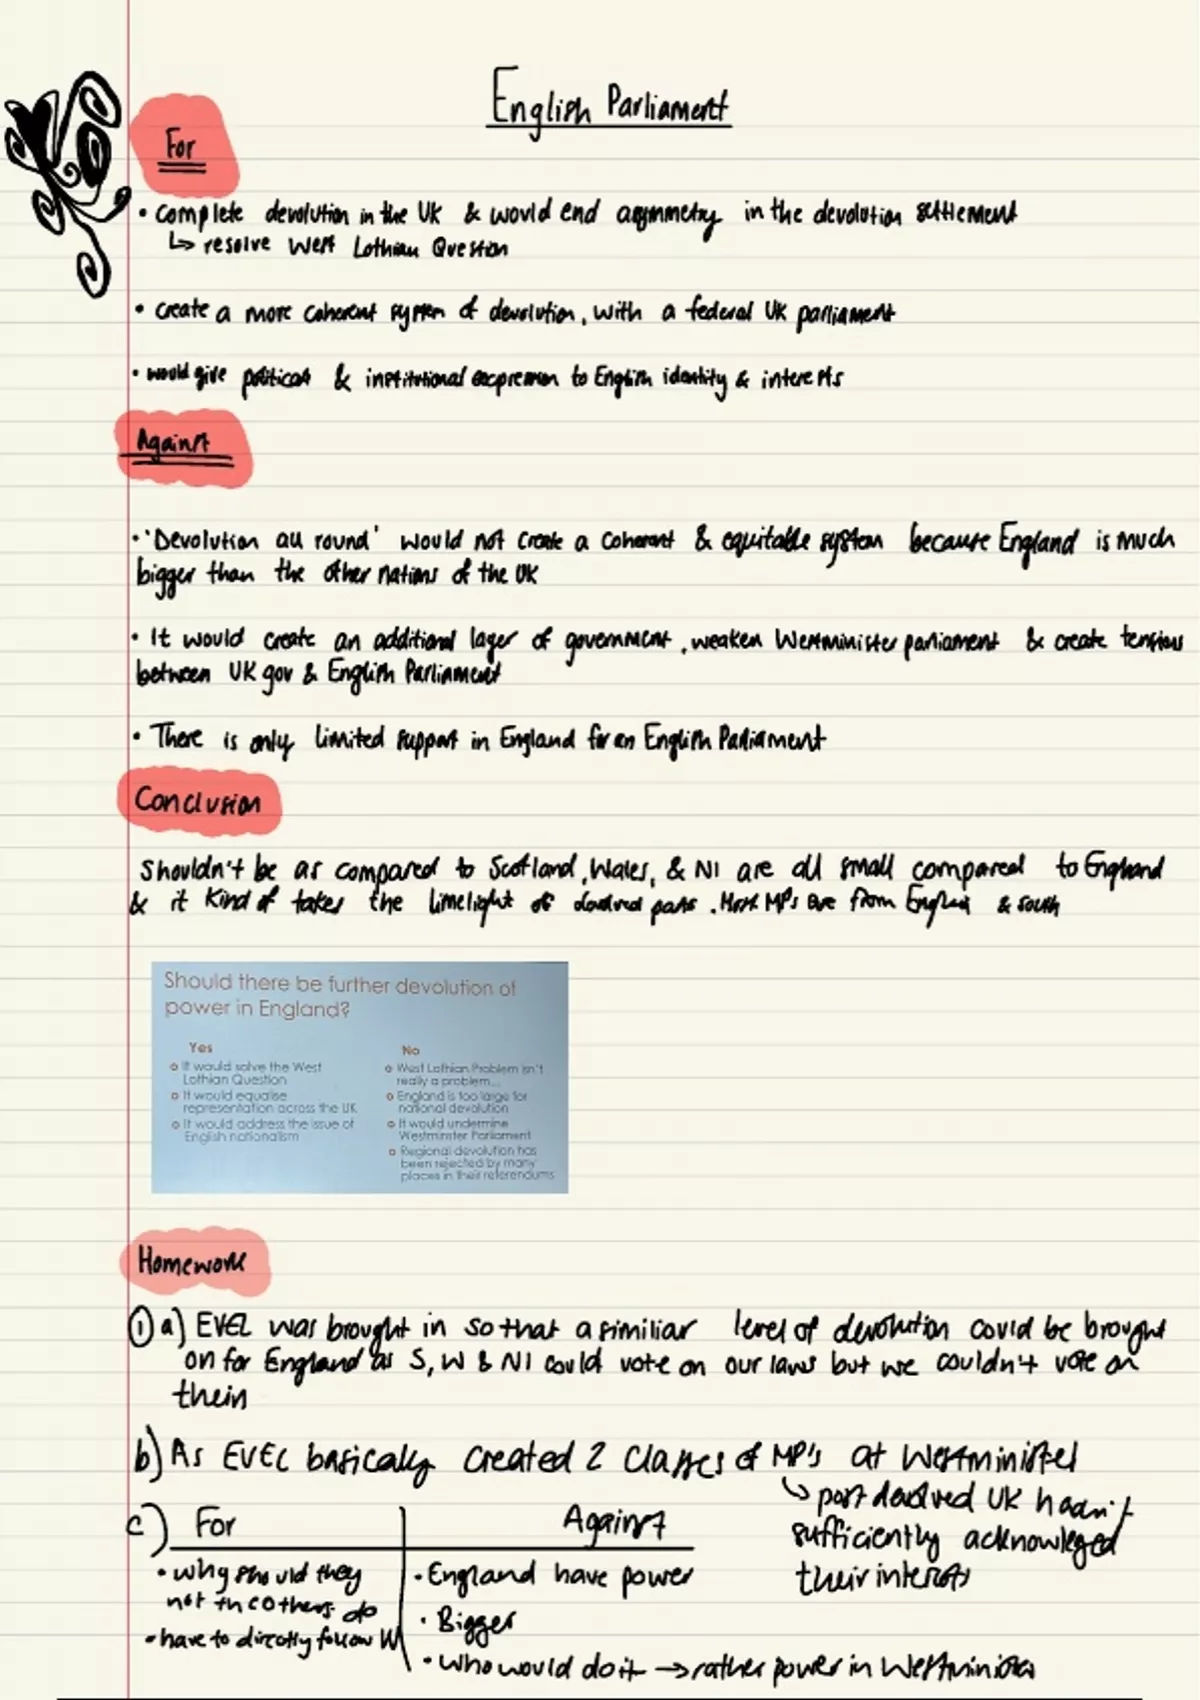 English Parliament
For
• complete devolution in the UK & would end asymmetry in the devolution settlement
↳ resolve West Lothian Question
• create a more coherent system of devolution, with a federal UK parliament
• would give political & institutional expression to English identity & interests
Against
• 'Devolution all round' would not create a coherent & equitable system because England is much
bigger than the other nations of the UK
• It would create an additional layer of government, weaken Westminister parliament & create tensions
between UK gov & English Parliament
• There is only limited support in England for an English Parliament
Conclusion
Shouldn't be as compared to Scotland, Wales, & NI are all small compared to England
& it kind of takes the limelight of devolved parts. Most MPs are from England & south
Should there be further devolution of
power in England?
Yes
It would solve the West
Lothian Question
It would equalise
representation across the UK
It would address the issue of
English nationalism
No
West Lothian Problem isn't
really a problem...
England is too large for
national devolution
It would undermine
Westminster Parliament
Regional devolution has
been rejected by many
places in their referendums
Homework
① a) EVEL was brought in so that a similiar level of devolution could be brought
on for England as S, W & NI could vote on our laws but we couldn't vote on
theirs
b) As EVEL basically created 2 classes of MP's at Westminister
↳ post devolved UK hadn't
sufficiently acknowleged
their interests
c) For
• why should they
not the others do
• have to directly follow W
Against
• England have power
• Bigger
• who would do it → rather power in Westminister